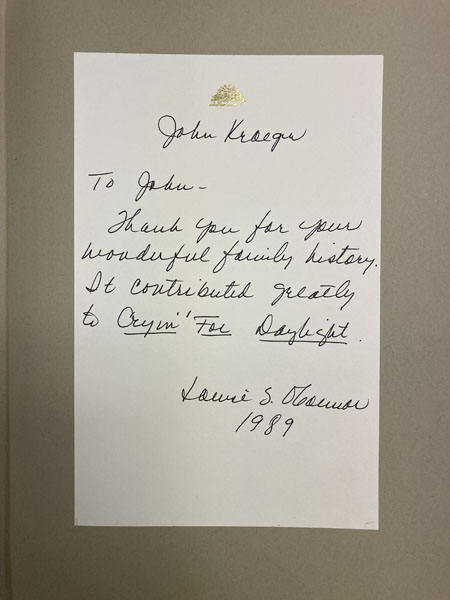 John Kroeger
To John -
Thank you for your
wonderful family history.
It contributed greatly
to Cryin' For Daylight.
Louise S. O'Connor
1989